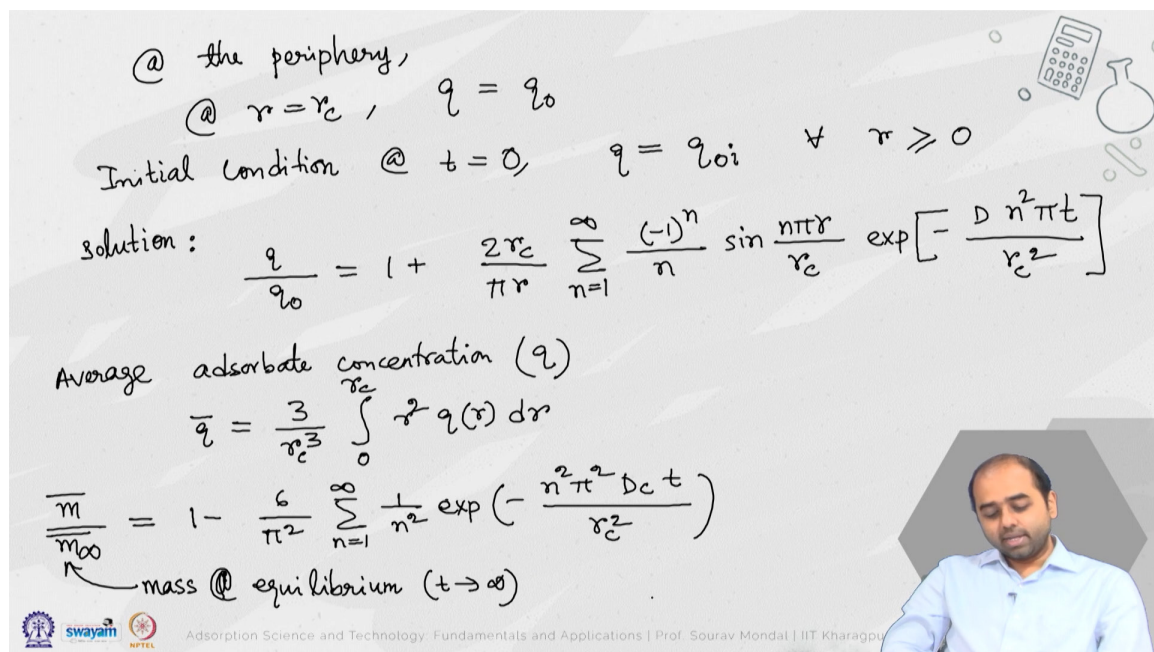 @ the periphery,
@ r = r_c , q = q_0
Initial condition @ t = 0, q = q_{0i} ∀ r ⩾ 0
solution : q/q_0 = 1 + 2r_c/πr ∑_{n=1}^{∞} (-1)^n/n sin nπr/r_c exp[- D n²πt/r_c²]
Average adsorbate concentration (q)
q̅ = 3/r_c³ ∫_0^{r_c} r² q(r) dr
m̅/m̅_∞ = 1- 6/π² ∑_{n=1}^{∞} 1/n² exp(- n²π² D_c t/r_c²)
mass @ equilibrium (t→∞)
swayam
NPTEL
Adsorption Science and Technology: Fundamentals and Applications | Prof. Sourav Mondal | IIT Kharagpu